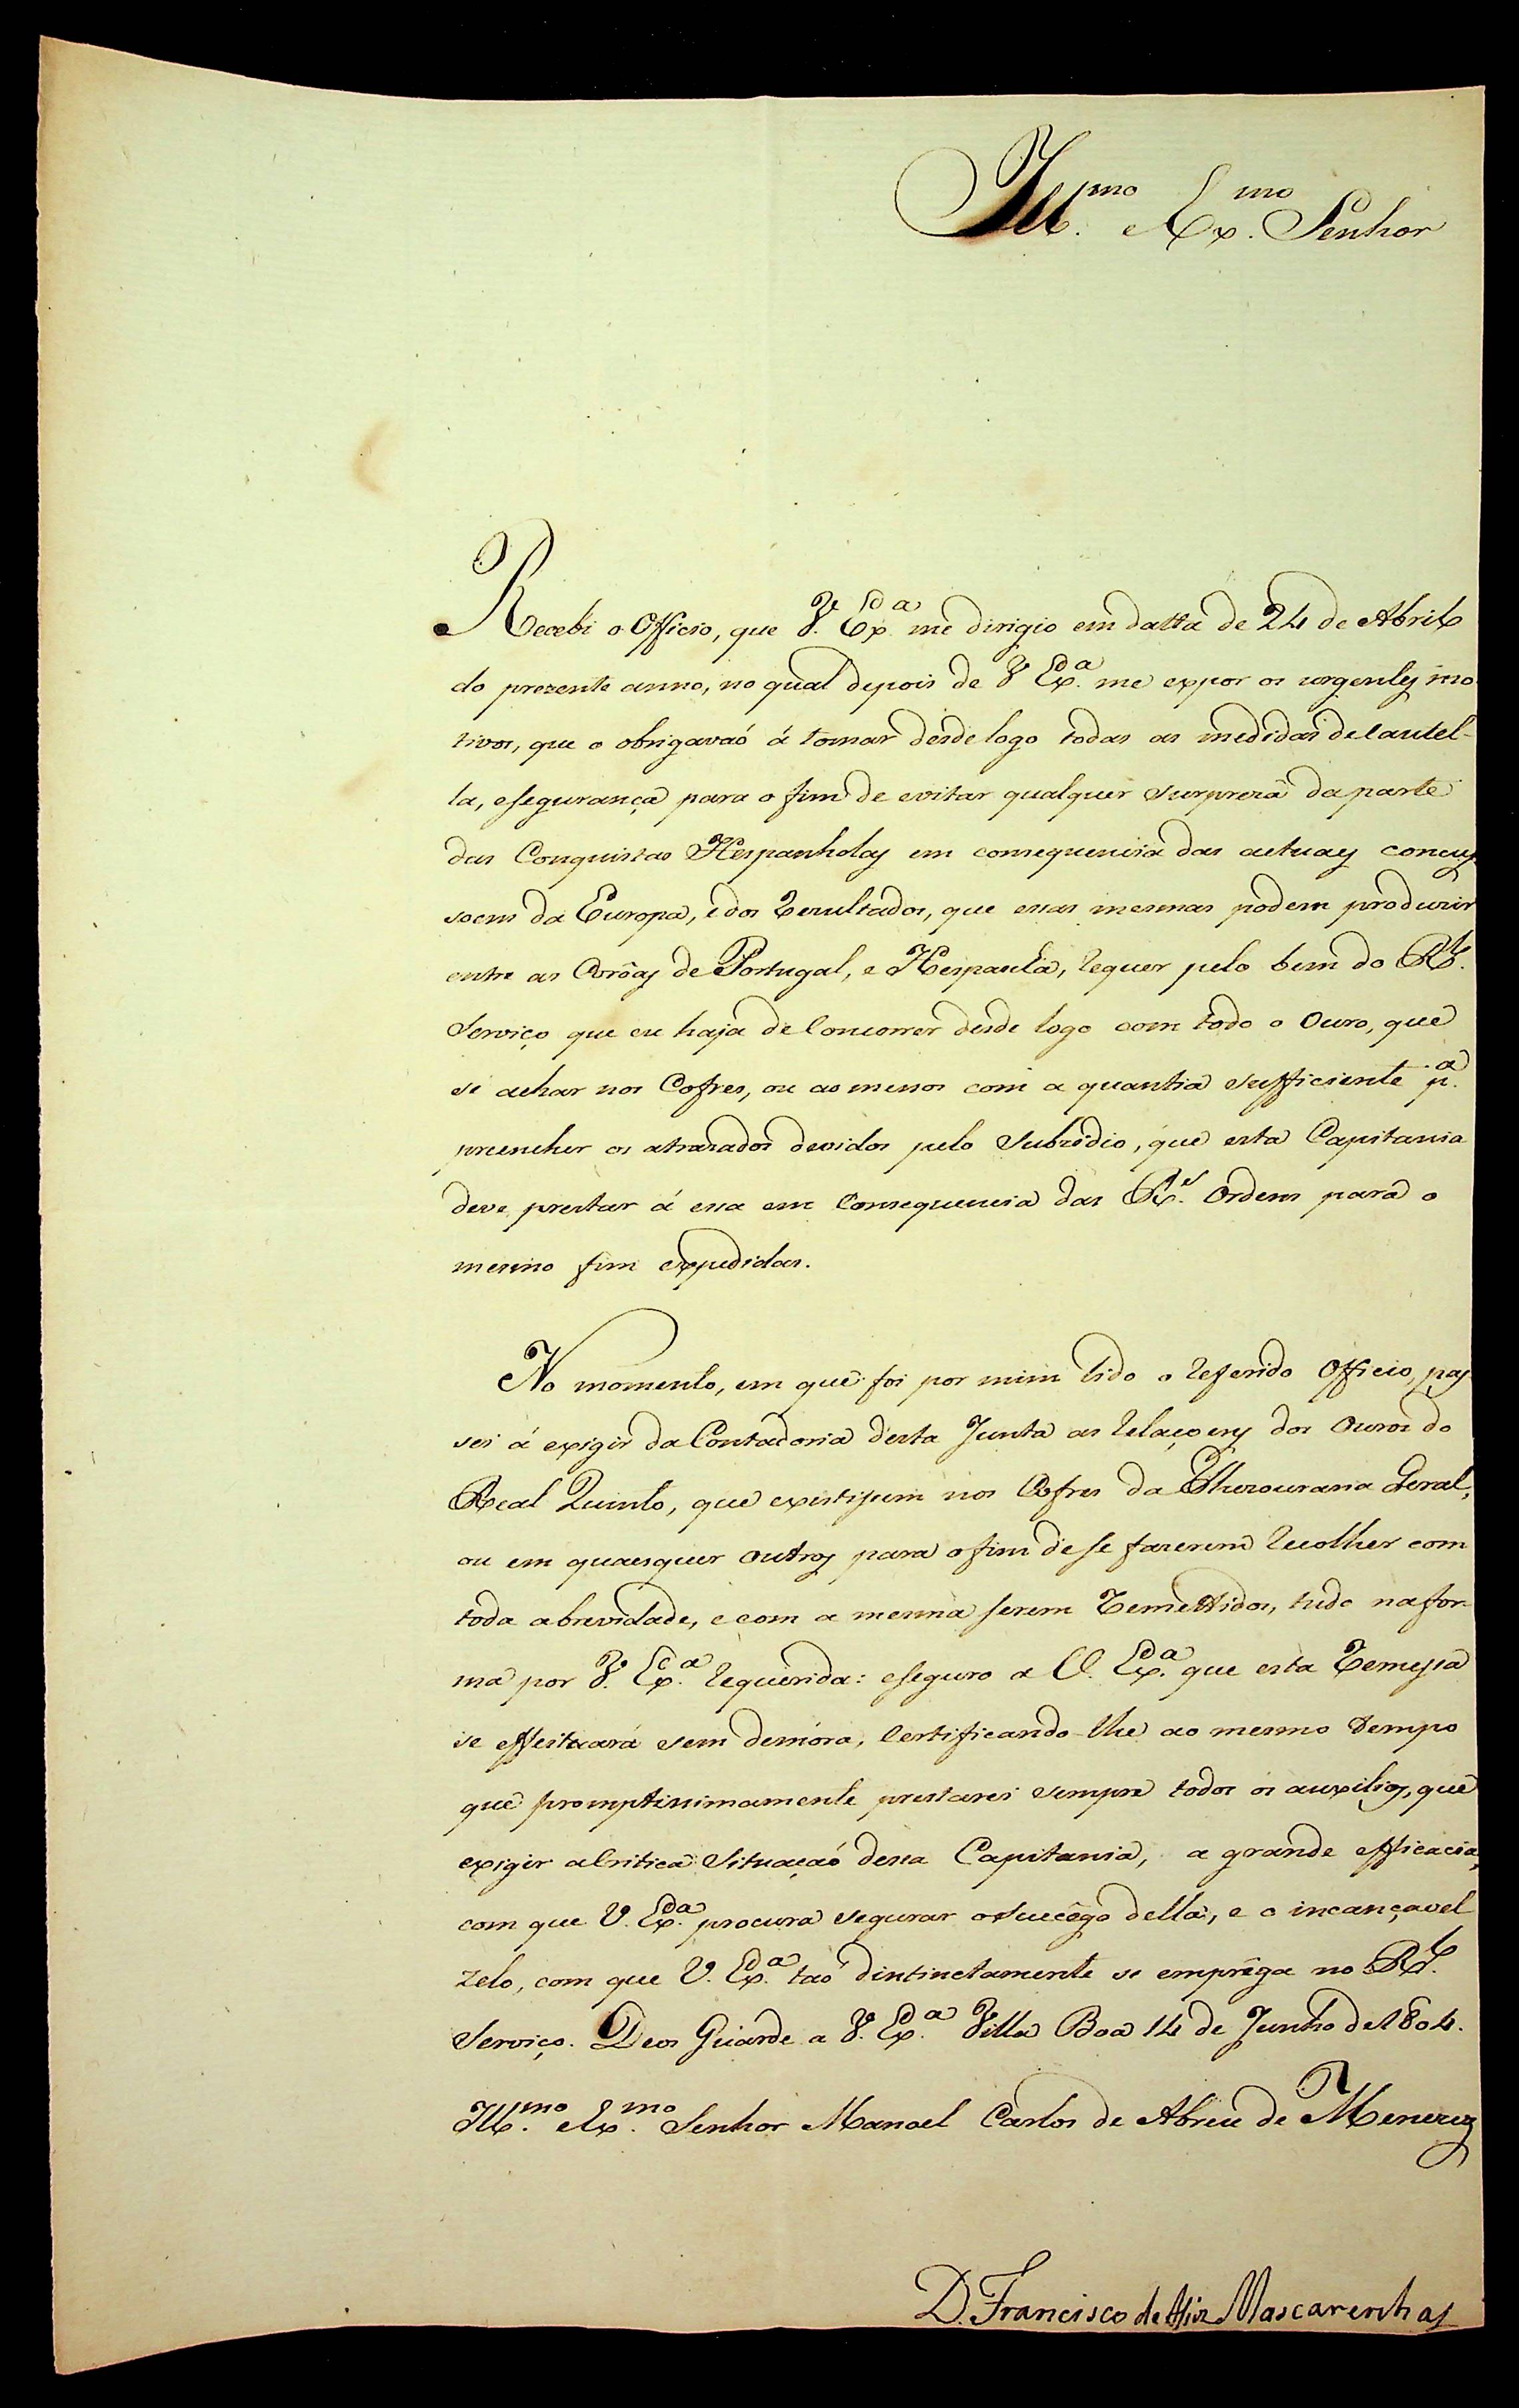 Ill.mo e Ex.mo Senhor
Recebi o Officio, que V. Ex.ca me dirigio em datta de 24 de Abril
do prezente anno, no qual depois de V Ex.ca me expor os urgentes mo-
tivos, que o obrigavaó á tomar desde logo todas as medidas de Cautel-
la, e segurança para o fim de evitar qualquer surpreza da parte
das Conquistas Hespanholas em consequencia das actuaes concus-
soens da Europa, e dos Rezultados, que essas mesmas podem produzir
entre as Corôas de Portugal, e Hespanha, requer pelo bem do R.l
Serviço que eu haja de Concorrer desde logo com todo o Ouro, que
se achar nos Cofres, ou ao menos com a quantia sufficiente p.a
preencher os atrazados devidos pelo Subsidio, que esta Capitania
deve prestar á essa em Consequencia das R.s Ordens para o
mesmo fim expedidas.
No momento, em que foi por mim lido o referido Officio, pas-
sei á exigir da Contadoria desta Junta as relaçoens dos Ouros do
Real Quinto, que existissem nos Cofres da Thezouraria Geral,
ou em quaesquer outros para o fim de se fazerem recolher com
toda a brevidade, e com a mesma serem Remettidos, tudo na for-
ma por V. Ex.ca requerida: e seguro a V. Ex.ca que esta Remessa
se effeituará sem demóra, Certificando-lhe ao mesmo tempo
que promptissimamente prestarei sempre todos os auxilios, que
exigir a Critica Situaçaó dessa Capitania, a grande efficacia,
com que V. Ex.ca procura segurar o succêgo della, e o incançavel
zelo, com que V. Ex.ca taó distinctamente se emprêga no R.l
Serviço. Deos Guarde a V. Ex.ca Villa Boa 14 de Junho de 1804.
Ill.mo e Ex.mo Senhor Manoel Carlos de Abreu de Menezes
D. Francisco de Assiz Mascarenhas